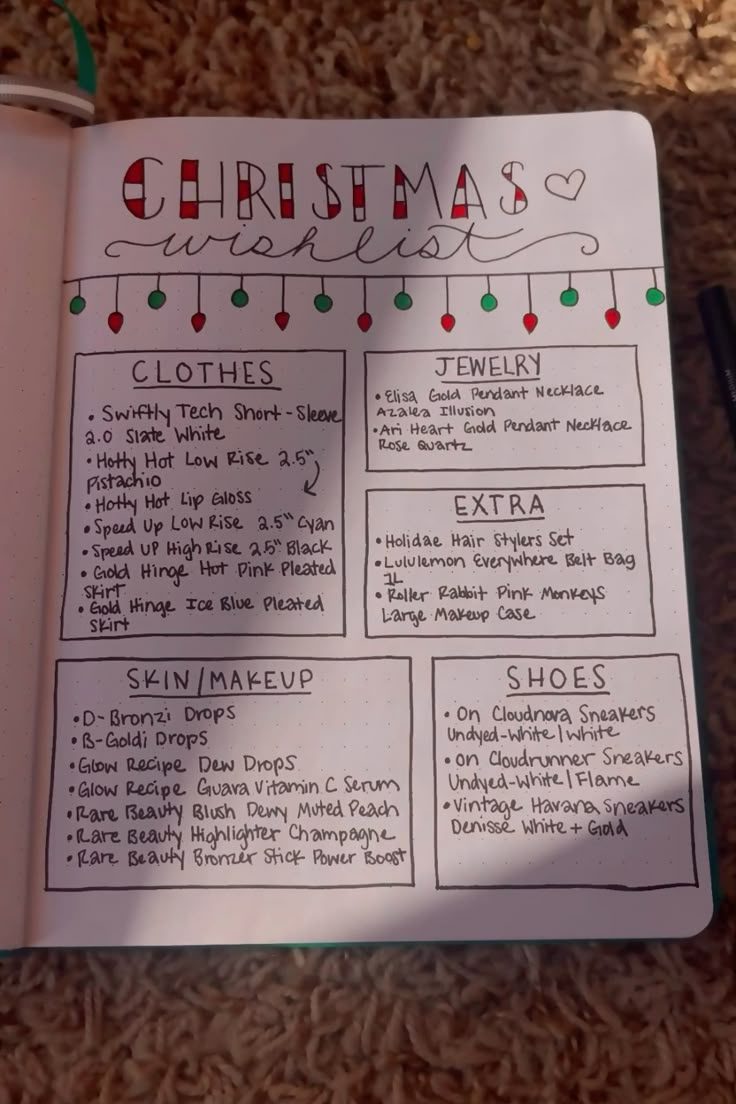 CHRISTMAS
wishlist
CLOTHES
• Swiftly Tech Short-Sleeve
2.0 Slate White
• Hotty Hot Low Rise 2.5"
Pistachio
• Hotty Hot Lip Gloss
• Speed Up Low Rise 2.5" Cyan
• Speed UP High Rise 2.5" Black
• Gold Hinge Hot Pink Pleated
Skirt
• Gold Hinge Ice Blue Pleated
Skirt
JEWELRY
• Elisa Gold Pendant Necklace
Azalea Illusion
• Ari Heart Gold Pendant Necklace
Rose Quartz
EXTRA
• Holidae Hair Stylers Set
• Lululemon Everywhere Belt Bag
1L
• Roller Rabbit Pink Monkeys
Large Makeup Case
SKIN/MAKEUP
• D-Bronzi Drops
• B-Goldi Drops
• Glow Recipe Dew Drops
• Glow Recipe Guava Vitamin C Serum
• Rare Beauty Blush Dewy Muted Peach
• Rare Beauty Highlighter Champagne
• Rare Beauty Bronzer Stick Power Boost
SHOES
• On Cloudnova Sneakers
Undyed-White | White
• On Cloudrunner Sneakers
Undyed-White | Flame
• Vintage Havana Sneakers
Denisse White + Gold